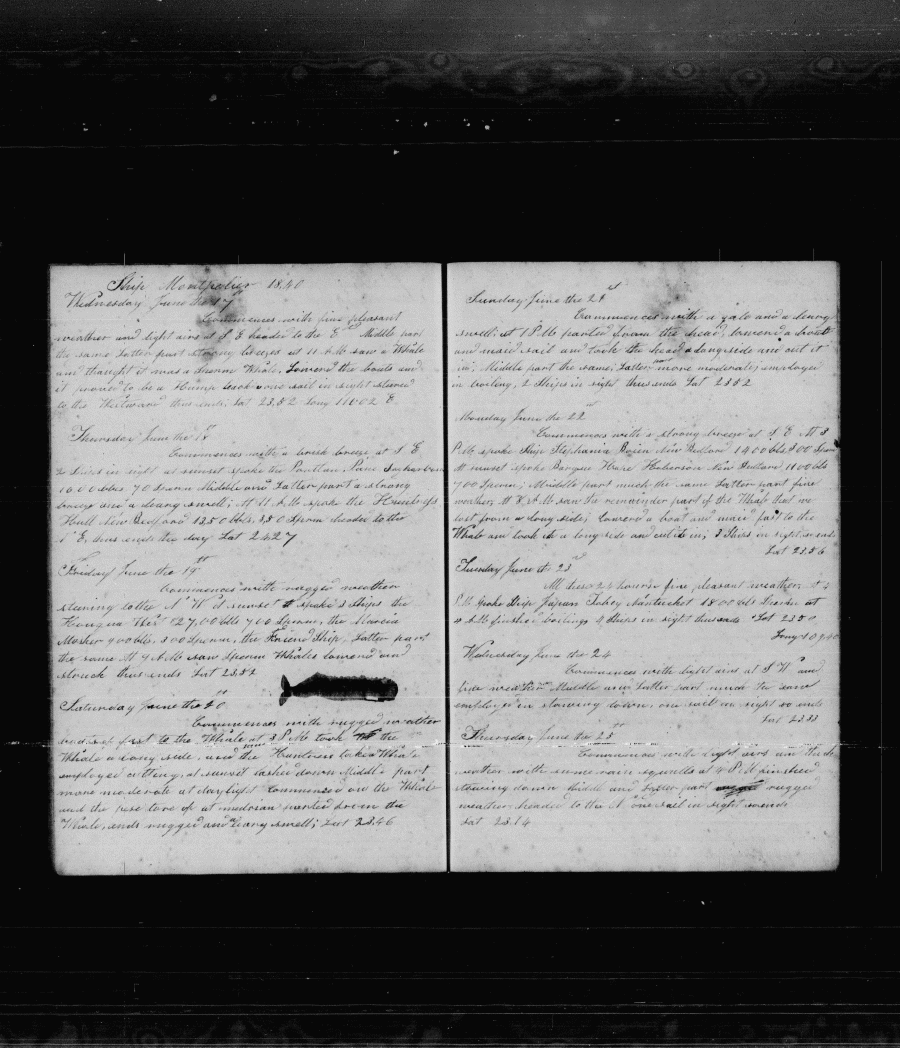 Ship Montpelier 1840
Wednesday June the 17
Commences with fine pleasant
weather and light airs at S E headed to the E Middle part
the same Latter part strong breezes at 11 A.M saw a Whale
and thought it was a sperm Whale, Lowered the boats and
it proved to be a Hump back one sail in sight steared
to the Westward thus ends, Lat 23.52 Long 110.02 E
Thursday June the 18
Commences with a brisk breeze at S E
2 Ships in sight at sunset spoke the
1000 bbls 70 Sperm Middle and Latter part a strong
breeze and a heavy swell; At 11 A.M spoke the Huntress
Hull New Bedford 1350 bbls, 350 Sperm headed to the
S E, thus ends the day Lat 24.27
Friday June the 19th
Commences with rugged weather
stearing to the N W at sunset spoke 3 Ships the
West 2700 bbls 700 Sperm, the Marcia
Mosher 900 bbls. 300 Sperm, the Friend Ship. Latter part
the same At 9 A.M saw Sperm Whales lowered and
struck thus ends Lat 23.52
Saturday June the 20
Commences with rugged weather
fast to the Whale at 3 P.M took the
Whale a long side, and the Huntress took a Whale
employed cutting, at sunset lashed down Middle part
more moderate at daylight Commenced on the Whale
and the tore up at meridian parted from the
Whale, ends rugged and heavy swell; Lat 23.46
Sunday June the 21st
Commences with a gale and a heavy
swell; at 1 P.M parted down the head, lowered a boat
and maid sail and took the head alongside and cut it
in; Middle part the same, Latter more moderate, employed
in boiling, 2 Ships in sight thus ends Lat 23.52
Monday June the 22
Commences with a strong breeze at S E At 3
P.M. spoke Ship Stephania New Bedford 1400 bbls 300 Sperm
At sunset spoke Barque Hope New Bedford 1100 bbls
700 Sperm; Middle part much the same Latter part fine
weather, At 8 A.M saw the remainder part of the Whale that we
lost from a long side; Lowered a boat and maid fast to the
Whale and took it a long side and cut it in; 3 Ships in sight, so ends
Lat 23.56
Tuesday June the 23
All these 24 hours fine pleasant weather, at 2
P.M. Spoke Ship Japan Tobey Nantucket 1800 bbls at
4 A.M finished boiling 4 Ships in sight thus ends Lat 23.50
Long 109.40
Wednesday June the 24
Commences with light airs at S W and
fine weather Middle and Latter part much the same
employed in stowing down, one sail in sight so ends
Lat 23.33
Thursday June the 25th
Commences with light airs and thick
weather with some rain squalls at 4 P.M finished
stowing down Middle and Latter part rugged
weather headed to the N one sail in sight so ends
Lat 23.14